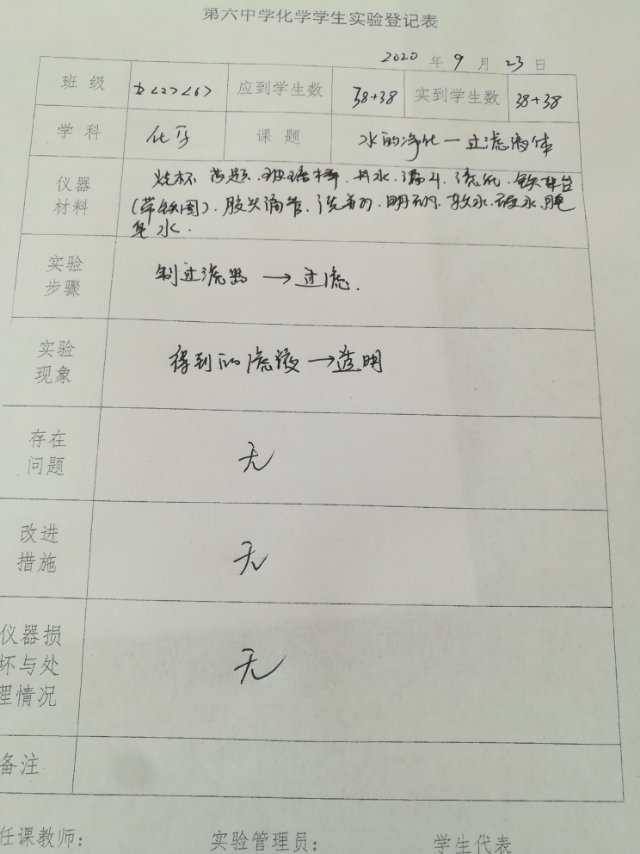 第六中学化学学生实验登记表
2020 年 9 月 23 日
班级 九<2><6> 应到学生数 38+38 实到学生数 38+38
学科 化学 课题 水的净化—过滤液体
仪器 烧杯 玻璃棒 井水 漏斗 滤纸 铁架台
材料 (带铁圈) 胶头滴管 明矾 软水 硬水 肥
皂水.
实验
步骤
制过滤器 → 过滤.
实验
现象
得到的滤液→透明
存在
问题
无
改进
措施
无
仪器损
坏与处
理情况
无
备注
任课教师: 实验管理员: 学生代表